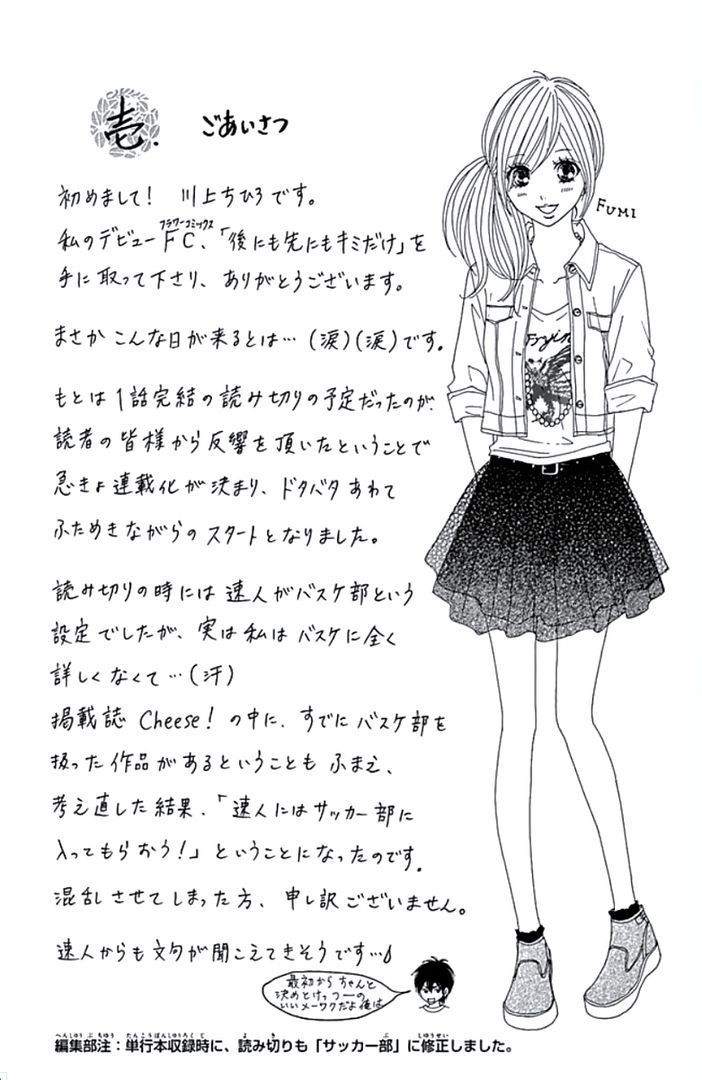 壱.
ごあいさつ
初めまして! 川上ちひろです。
フラワーコミックス
私のデビューFC、「後にも先にもキミだけ」を
手に取って下さり、ありがとうございます。
まさかこんな日が来るとは…(涙)(涙)です。
もとは1話完結の読み切りの予定だったのが、
読者の皆様から反響を頂いたということで
急きょ連載化が決まり、ドタバタあわて
ふためきながらのスタートとなりました。
読み切りの時には速人がバスケ部という
設定でしたが、実は私はバスケに全く
詳しくなくて…(汗)
掲載誌Cheese!の中に、すでにバスケ部を
扱った作品があるということもふまえ、
考え直した結果、「速人にはサッカー部に
入ってもらおう!」ということになったのです。
混乱させてしまった方、申し訳ございません。
速人からも文句が聞こえてきそうです…
最初からちゃんと
決めとけっつーの
いいメーワクだよ俺は
FUMI
へんしゅうぶちゅう たんこうぼんしゅうろくじ よ き ぶ しゅうせい
編集部注:単行本収録時に、読み切りも「サッカー部」に修正しました。